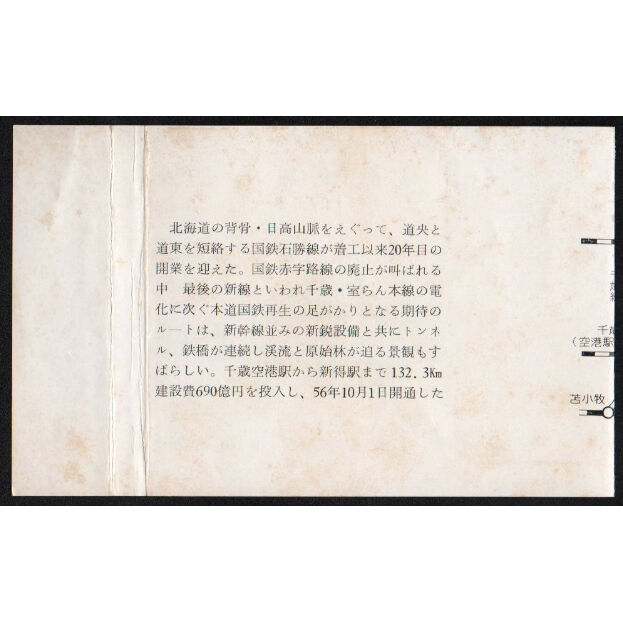 北海道の背骨・日高山脈をえぐって、道央と
道東を短絡する国鉄石勝線が着工以来20年目の
開業を迎えた。国鉄赤字路線の廃止が叫ばれる
中　最後の新線といわれ千歳・室らん本線の電
化に次ぐ本道国鉄再生の足がかりとなる期待の
ルートは、新幹線並みの新鋭設備と共にトンネ
ル、鉄橋が連続し渓流と原始林が迫る景観もす
ばらしい。千歳空港駅から新得駅まで132.3Km
建設費690億円を投入し、56年10月1日開通した
千歳
(空港駅
苫小牧